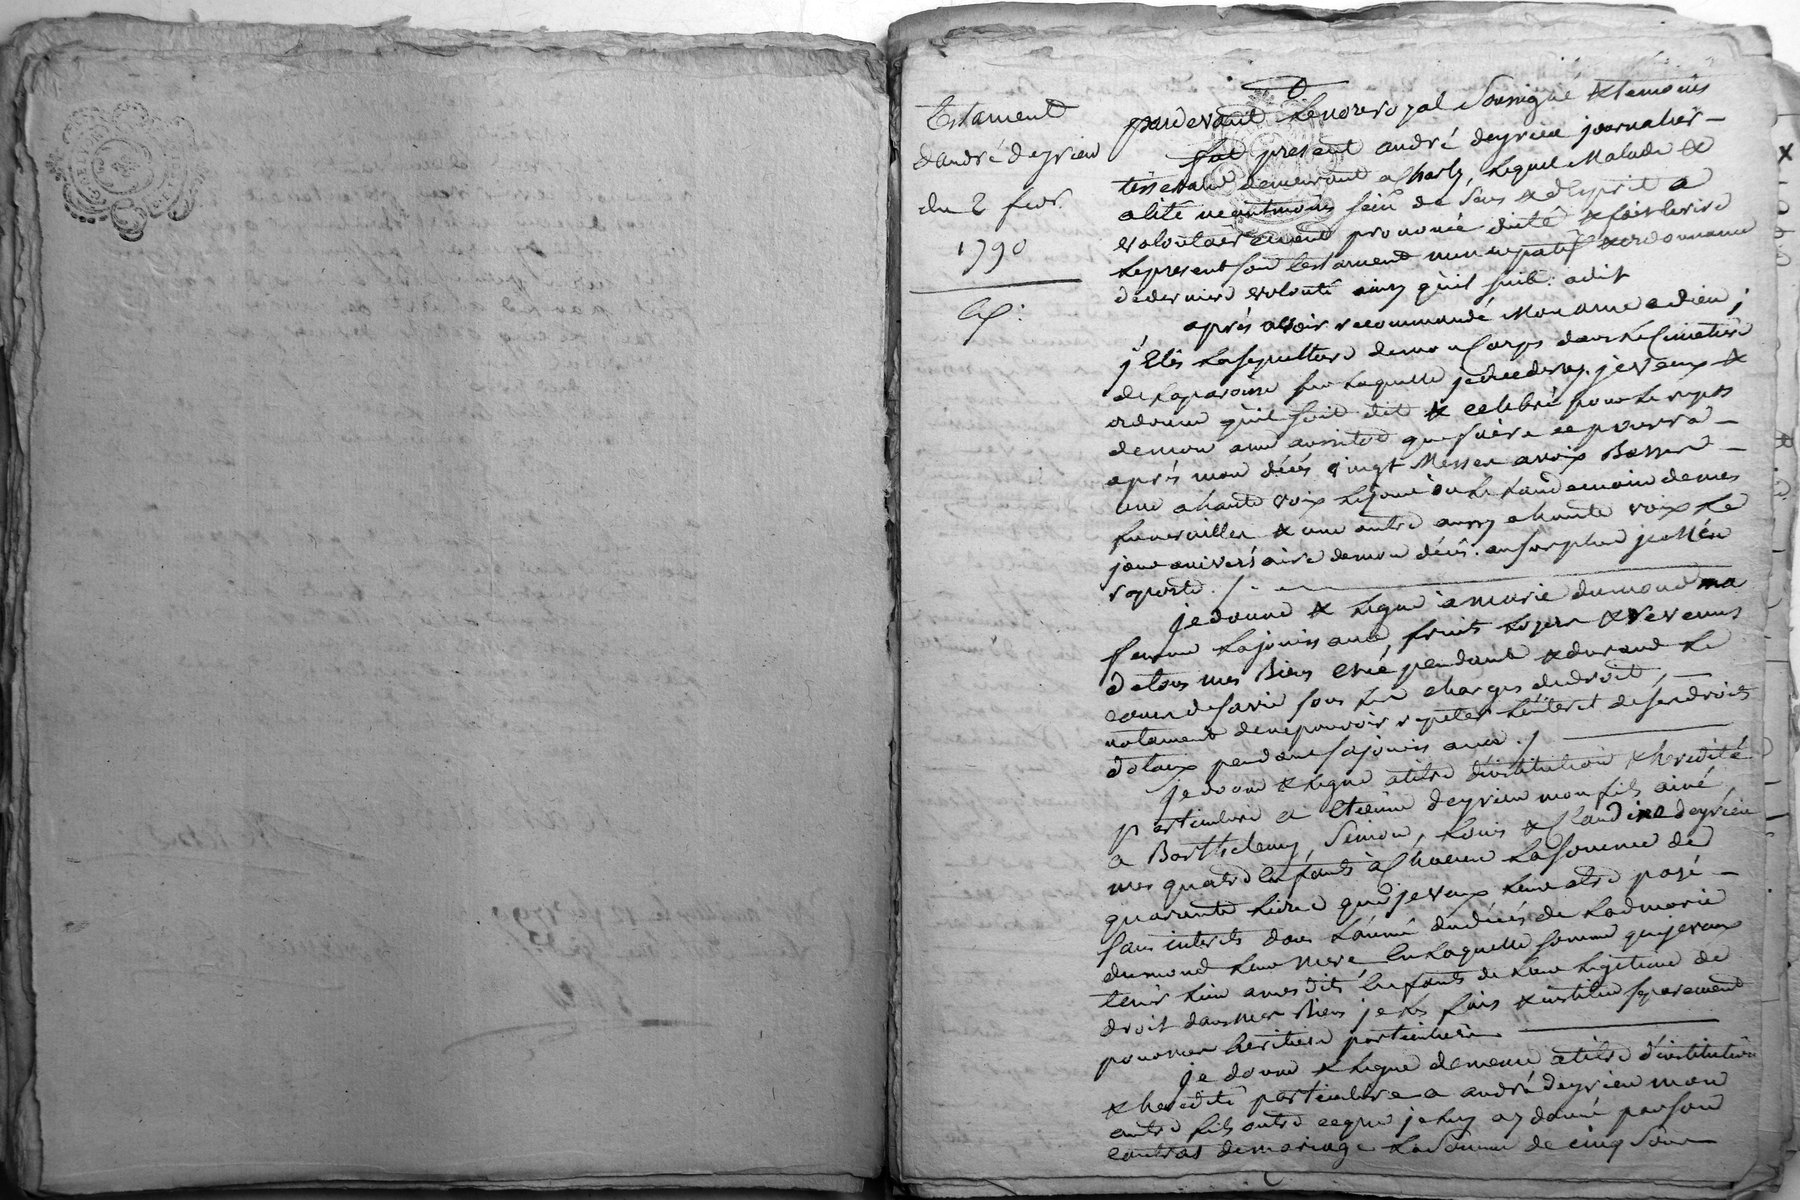 Testament
d'andré deyrieu
du 2 fevr.
1790
pardevant Le no.re royal Soussigné & temoins
fut present andré deyrieu journalier
tisserand demeurant a Charly, lequel Malade &
alité neantmoins sain de sens & d'esprit a
volontairement prononcé dicté & fait ecrire
Le present son testament nuncupatif & ordonnance
de derniere volonté ainsy qu'il suit. a dit
aprés avoir recommandé Mon ame a dieu j
j'Elis La sepulture de mon Corps dans Le Cimetiere
de La paroisse sur Laquelle je decederay. je veux &
ordonne qu'il soit dit & celebré pour Le repos
de mon ame aussitot que faire ce pourra
aprés mon décés vingt Messes a voix Basses
une a haute voix Le jour ou Le Landemain de mes
funerailles & une autre aussy a haute voix Le
jour aniversaire de mon décés. au surplus je M'en
raporte ./.
je donne & Legue a marie dumond ma
femme La jouissance, fruits Loyers & revenus
de tous mes Biens pendant & durand Le
cours de sa vie sous Les charges de droit,
notament de ne pouvoir repeter L'interet de ses droits
dotaux pendant sa jouissance ./.
je donne & Legue a titre d'institution & heredité
particuliere a Etienne deyrieu mon fils ainé
a Barthelemy, Simon, Louis & Claudine deyrieu
mes quatre Enfants a Chacun La somme de
quarante Livres que je veux Leur etre payé
sans interets dans L'année du décés de Ladte marie
dumond Leur Mere, En Laquelle somme que je veux
tenir Lieu a mesdits Enfants de Leur Legitime de
droit dans mes Biens je Les fais & institue separement
pour mes heritiers particuliers
je donne & Legue de meme a titre d'institution
& heredité particuliere a andré deyrieu mon
autre fils outre ce que je Luy ay donné par son
contrat de mariage La somme de cinq sous